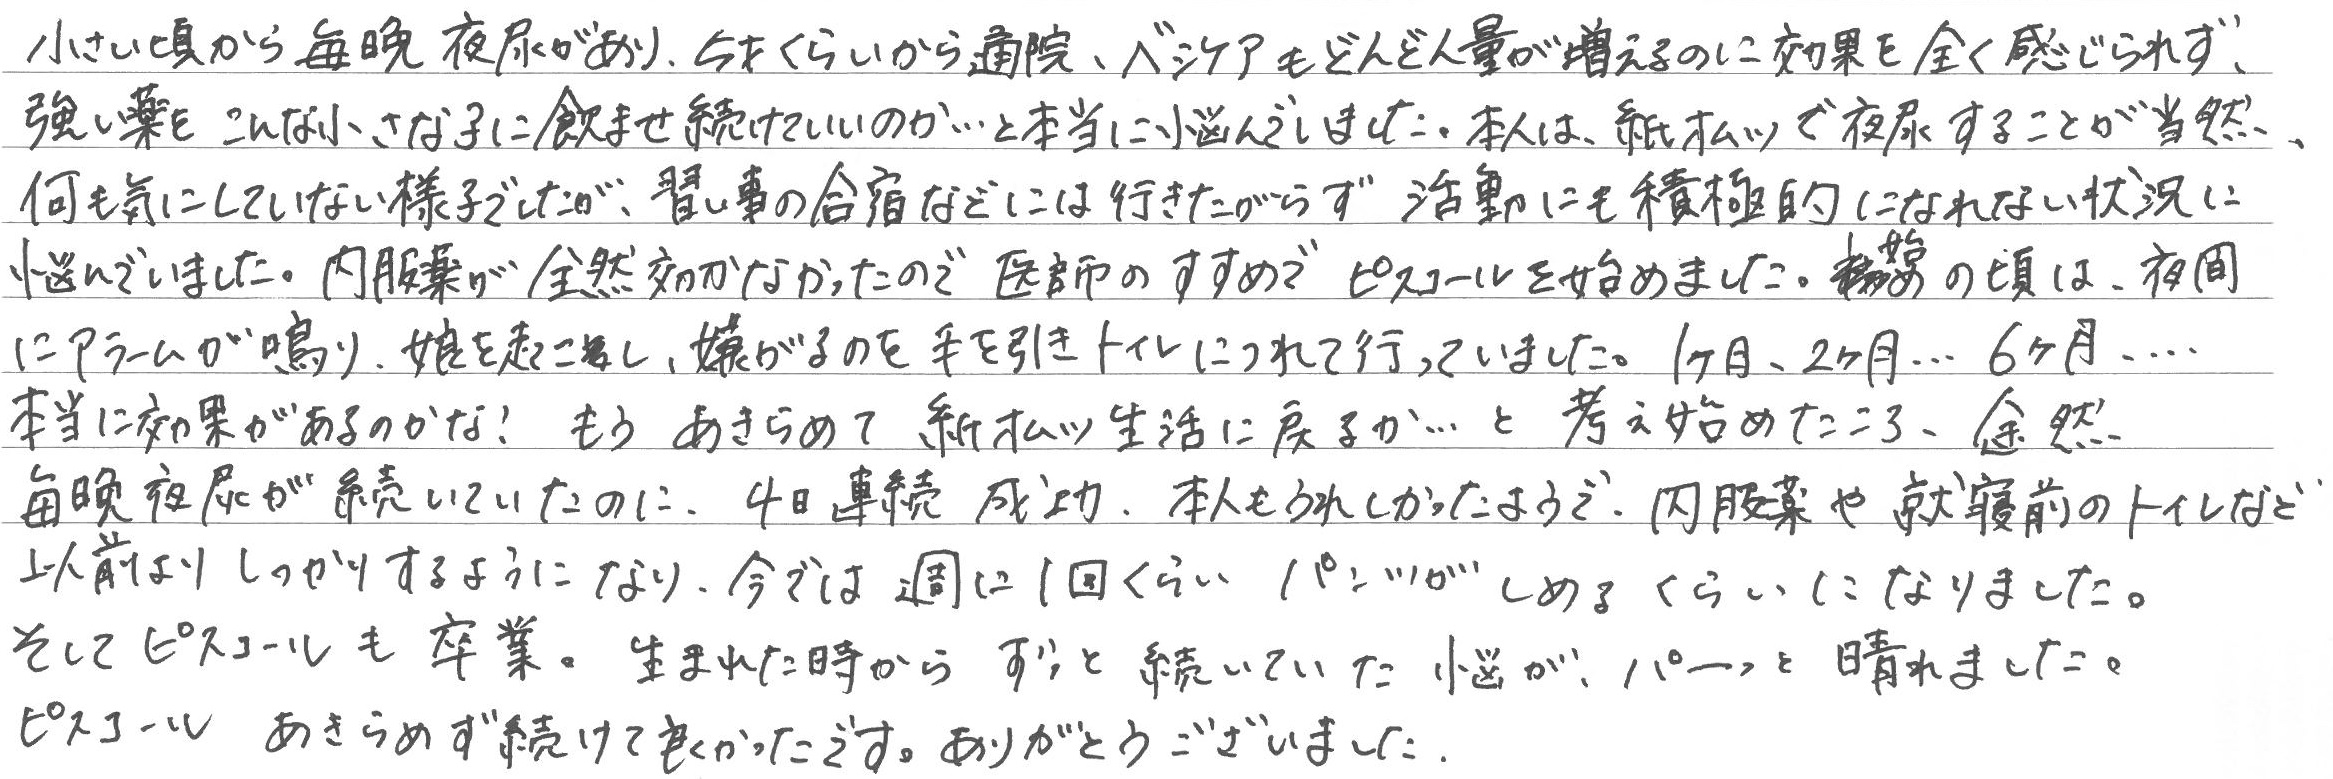 小さい頃から毎晩夜尿があり、5才くらいから通院、ベシケアもどんどん量が増えるのに効果を全く感じられず、
強い薬をこんな小さな子に飲ませ続けていいのか…と本当に悩んでいました。本人は、紙オムツで夜尿することが当然、
何も気にしていない様子でしたが、習い事の合宿などには行きたがらず 活動にも積極的になれない状況に
悩んでいました。内服薬が全然効かなかったので医師のすすめで ピスコールを始めました。 の頃は、夜間
にアラームが鳴り、娘を起こし、嫌がるのを手を引きトイレにつれて行っていました。1ヶ月、2ヶ月… 6ヶ月、…
本当に効果があるのかな! もう あきらめて 紙オムツ生活に戻るか…と 考え始めたころ、突然
毎晩夜尿が続いていたのに、4日連続 成功、本人もうれしかったようで、内服薬や就寝前のトイレなど
以前よりしっかりするようになり、今では週に1回くらい パンツがしめるくらいになりました。
そしてピスコールも卒業。生まれた時からずっと続いていた悩が、パーっと晴れました。
ピスコール あきらめず続けて良かったです。ありがとうございました.